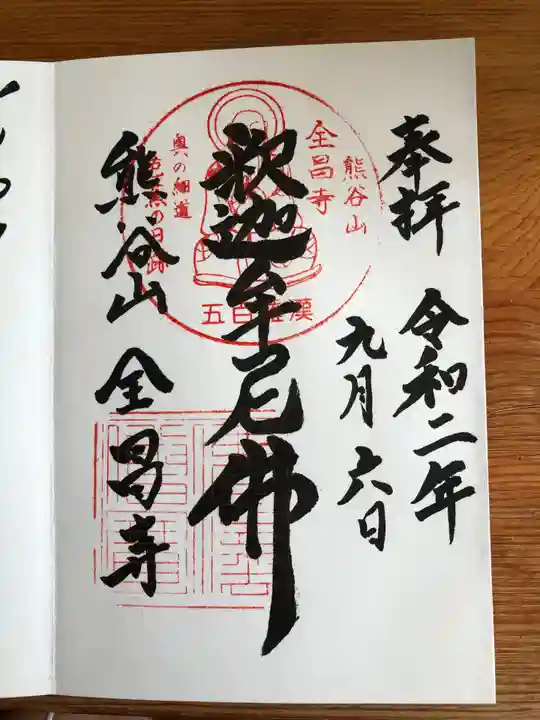 奉拝
令和二年
九月六日
釈迦牟尼佛
熊谷山
全昌寺
熊谷山
全昌寺
奥の細道
五百羅漢